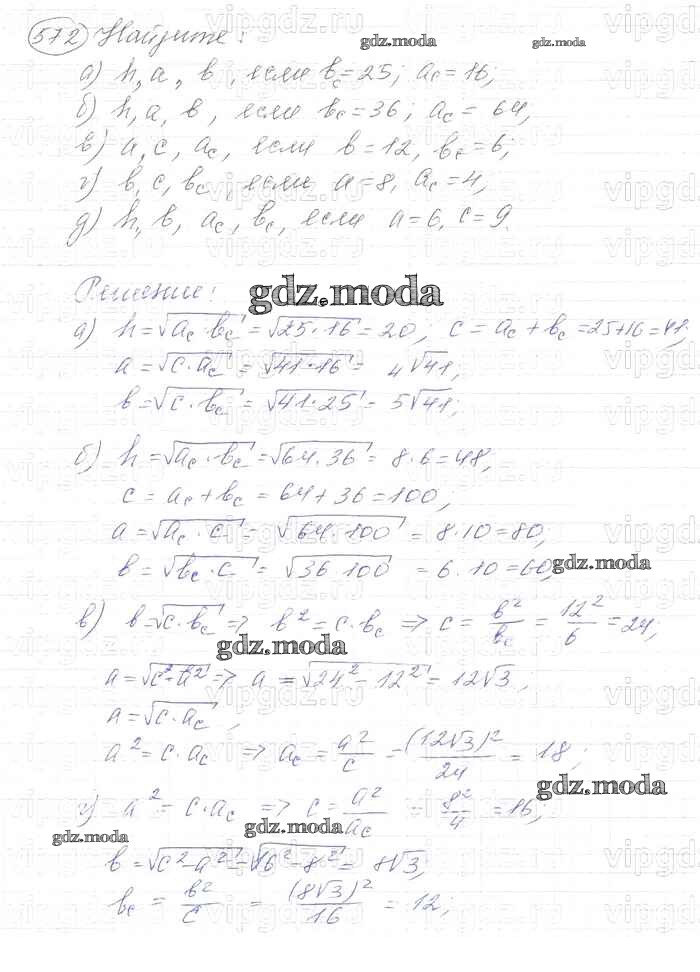 572 Найдите:
gdz.moda gdz.moda
а) h, a, в, если вc=25; ac=16;
б) h, a, в, если вc=36; ac=64,
в) a, c, ac, если в=12, вc=6;
г) в, c, вc, если a=8, ac=4,
д) h, в, ac, вc, если a=6, c=9.
Решение:
gdz.moda
а) h=√ac·вc=√25·16=20; c=ac+вc=25+16=41;
a=√c·ac=√41·16=4√41,
в=√c·вc=√41·25=5√41;
б) h=√ac·вc=√64·36=8·6=48,
c=ac+вc=64+36=100,
a=√ac·c=√64·100=8·10=80;
в=√вc·c=√36 100=6.10=60,
gdz.moda
в) в=√c·вc=> в²=c·вc => c=в²/вc=12²/6=24;
gdz.moda
a=√c²-в²=> a=√24²-12²=12√3;
a=√c·ac,
a²=c·ac => ac=a²/c=(12√3)²/24=18;
gdz.moda
г) a²=c·ac => c=a²/ac=8²/4=16,
gdz.moda gdz.moda
в=√c²-a²=√16²-8²=8√3,
вc=в²/c=(8√3)²/16=12;